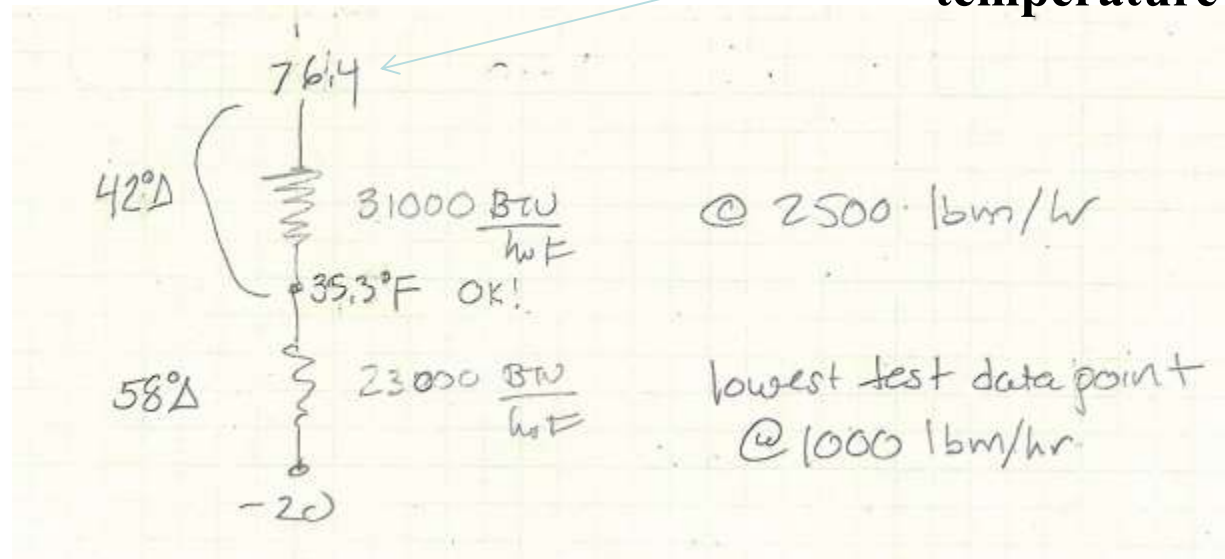 temperature
76.4
42°Δ
31000 BTU
hr F
@ 2500 lbm/hr
35.3°F OK!
58°Δ
23000 BTU
hr F
lowest test data point
@ 1000 lbm/hr
-20